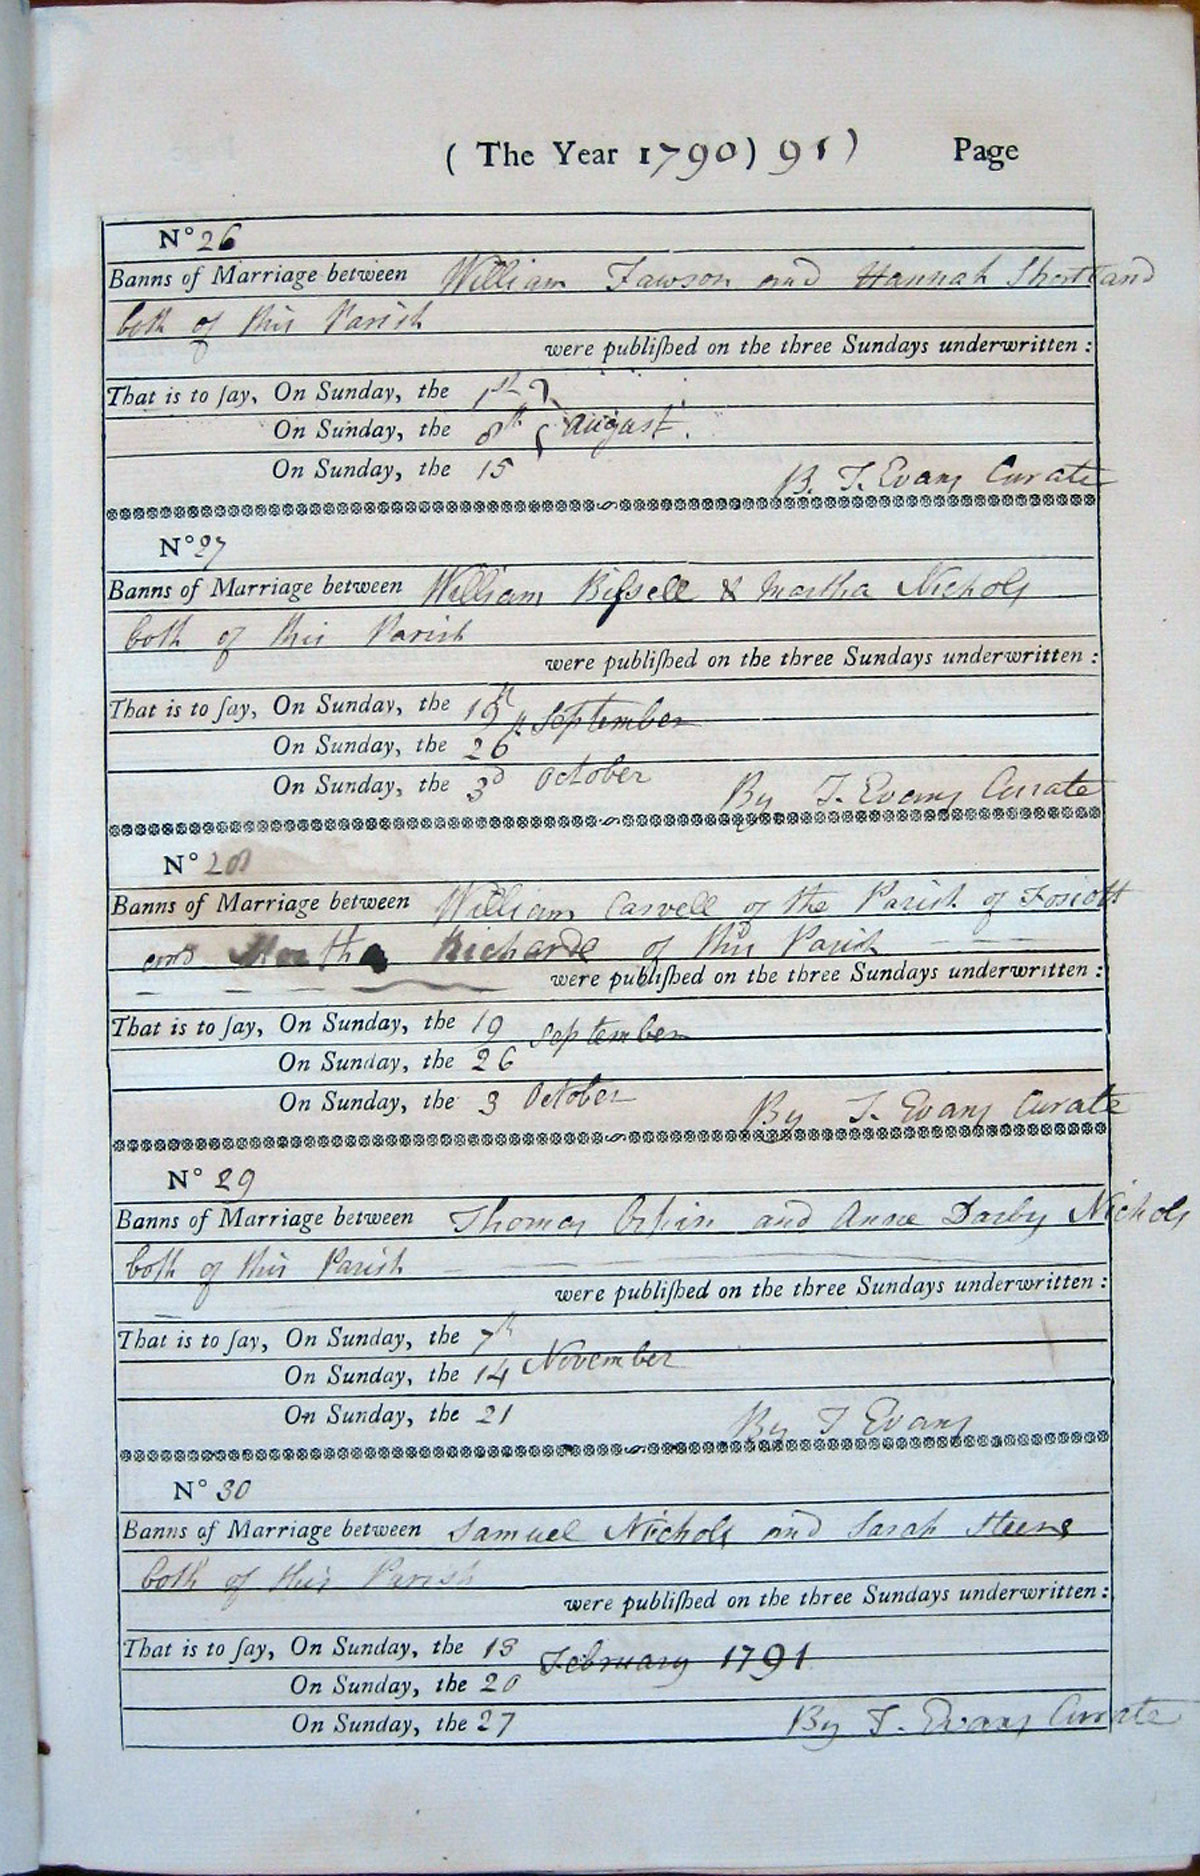 ( The Year 1790) 91) Page
N° 26
Banns of Marriage between William Fawson and Hannah Shortland
both of this Parish
were publiſhed on the three Sundays underwritten :
That is to ſay, On Sunday, the 1st
On Sunday, the 8th August.
On Sunday, the 15
B. T. Evans Curate
N° 27
Banns of Marriage between William Biſsell & Martha Nichols
both of this Parish
were publiſhed on the three Sundays underwritten :
That is to ſay, On Sunday, the 19th September
On Sunday, the 26
On Sunday, the 3d October
By T. Evans Curate
N° 28
Banns of Marriage between William Carvell of the Parish of Foscott
and Martha Richards of this Parish
were publiſhed on the three Sundays underwritten :
That is to ſay, On Sunday, the 19 September
On Sunday, the 26
On Sunday, the 3 October
By T. Evans Curate
N° 29
Banns of Marriage between Thomas and Anne Darby Nichols
both of this Parish
were publiſhed on the three Sundays underwritten :
That is to ſay, On Sunday, the 7th
On Sunday, the 14 November
On Sunday, the 21
By T Evans
N° 30
Banns of Marriage between Samuel Nichols and Sarah Steens
both of this Parish
were publiſhed on the three Sundays underwritten :
That is to ſay, On Sunday, the 13 February 1791
On Sunday, the 20
On Sunday, the 27
By T. Evans Curate